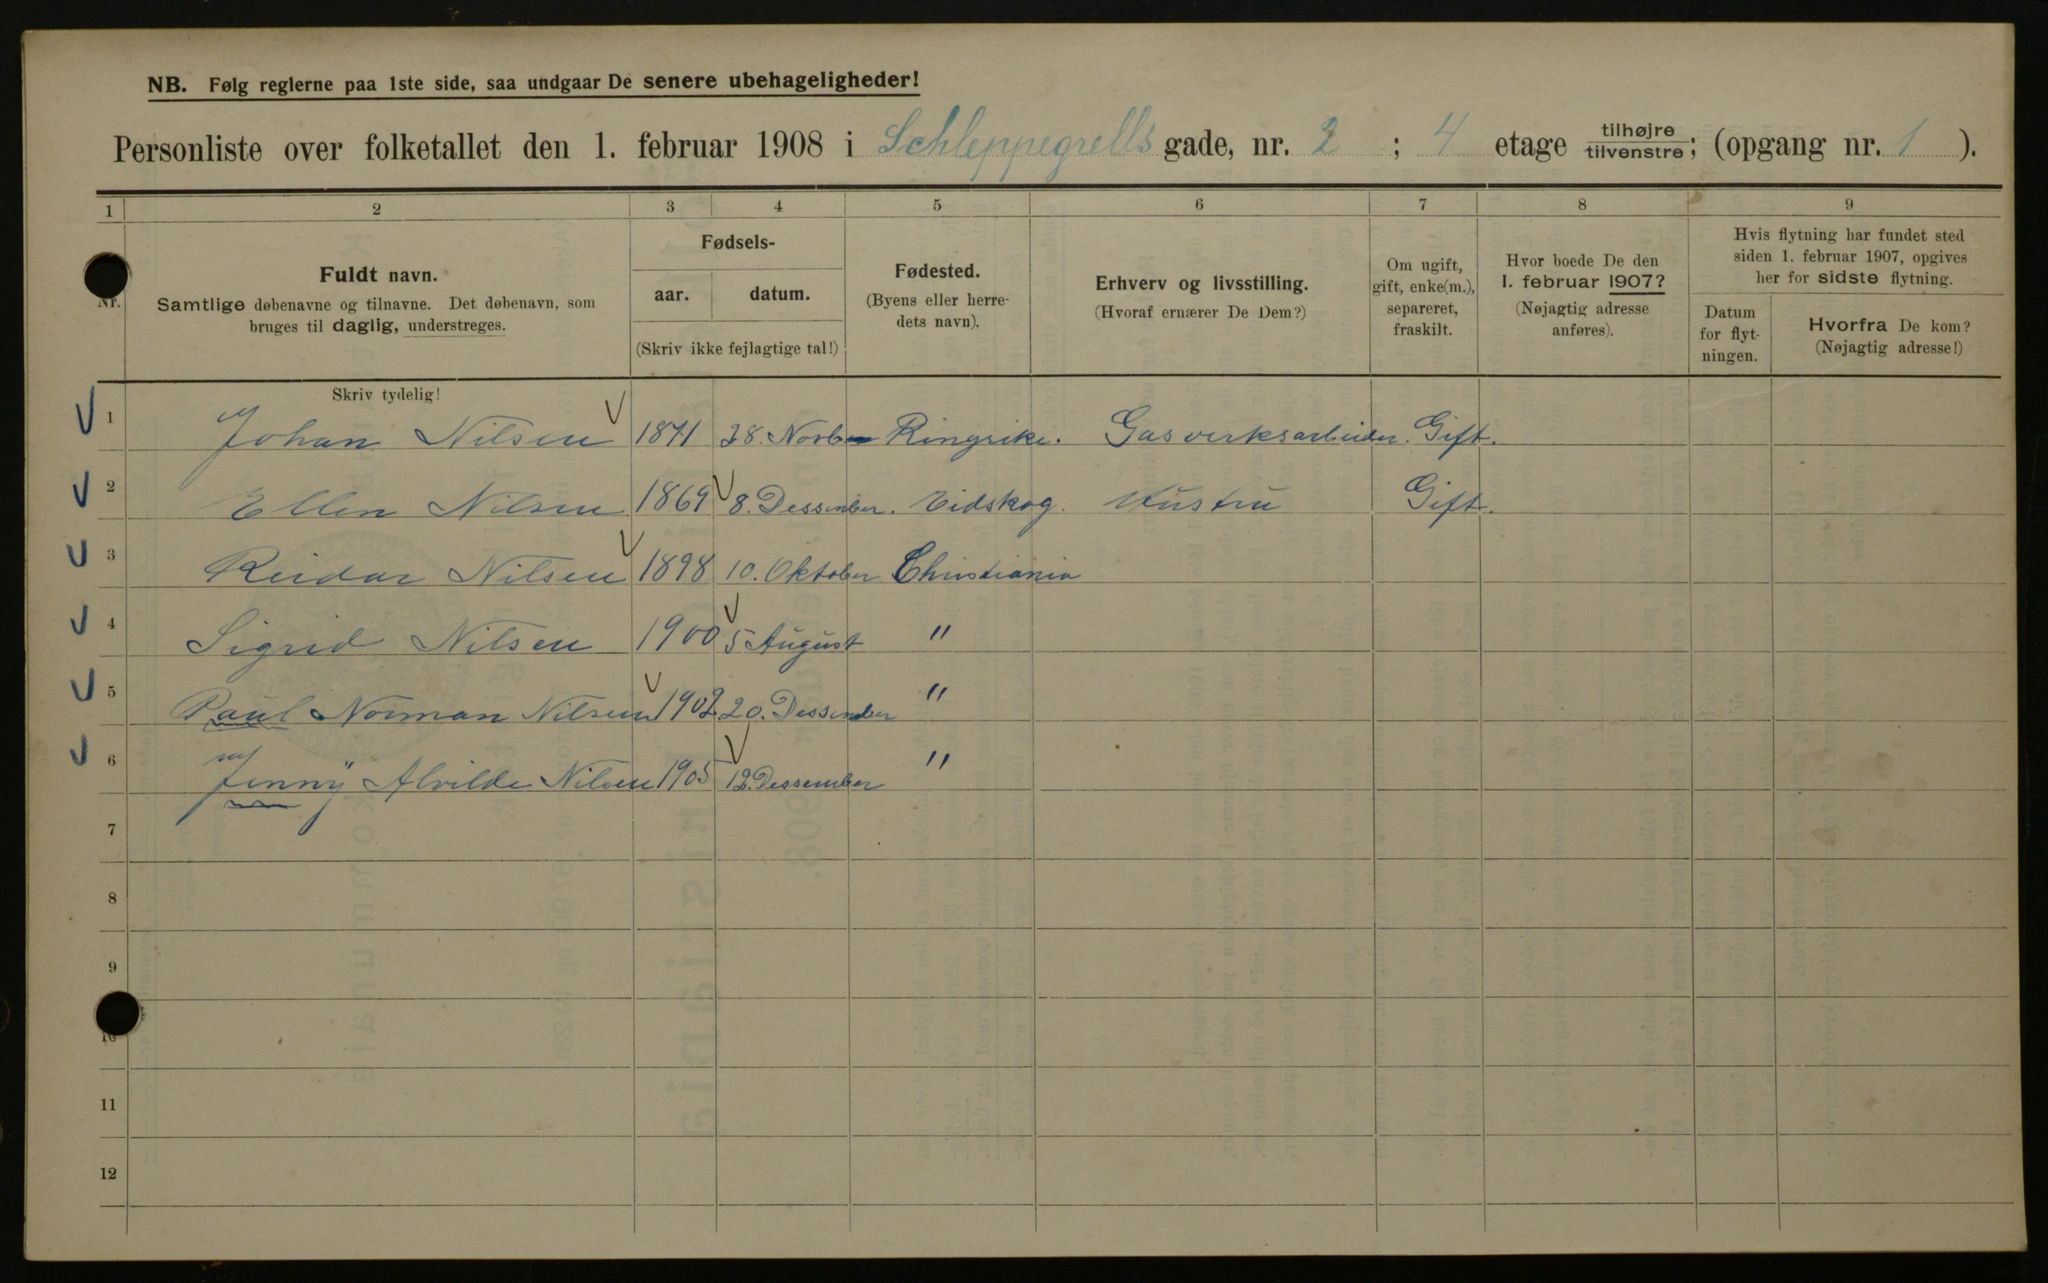 NB. Følg reglerne paa 1ste side, saa undgaar De senere ubehageligheder!
Personliste over folketallet den 1. februar 1908 i Schleppegrells gade, nr. 2 ; 4 etage tilhøjre tilvenstre; (opgang nr. 1 ).
1 2 3 4 5 6 7 8 9
Nr.
Fuldt navn.
Samtlige døbenavne og tilnavne. Det døbenavn, som
bruges til daglig, understreges.
Fødsels-
aar. datum.
(Skriv ikke fejlagtige tal!)
Fødested.
(Byens eller herre-
dets navn).
Erhverv og livsstilling.
(Hvoraf ernærer De Dem?)
Om ugift,
gift, enke(m.),
separeret,
fraskilt.
Hvor boede De den
1. februar 1907?
(Nøjagtig adresse
anføres).
Hvis flytning har fundet sted
siden 1. februar 1907, opgives
her for sidste flytning.
Datum
for flyt-
ningen.
Hvorfra De kom?
(Nøjagtig adresse!)
Skriv tydelig!
1 Johan Nilsen 1871 28. Novb Ringrike. Gasverksarbeider. Gift.
2 Ellen Nilsen 1869 8. Dessember. Eidskog. Hustru Gift.
3 Reidar Nilsen 1898 10. Oktober Christiania
4 Sigrid Nilsen 1900 5 August "
5 Paul Norman Nilsen 1902 20. Dessember "
6 Jenny Alvilde Nilsen 1905 12. Dessember "
7
8
9
10
11
12